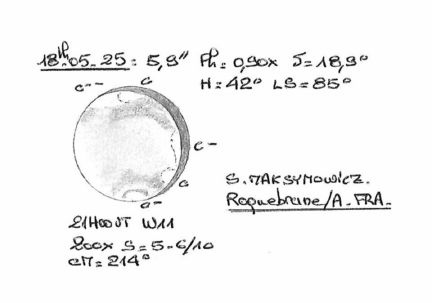 18-05-25 = 5,9" Ph = 0,90x δ = 18,9°
H = 42° LS = 85°
C-- C
C-
C
C-
21H00UT W11
200x S = 5-6/10
CM = 214°
S. MAKSYMOWICZ.
Roquebrune/A. FRA.